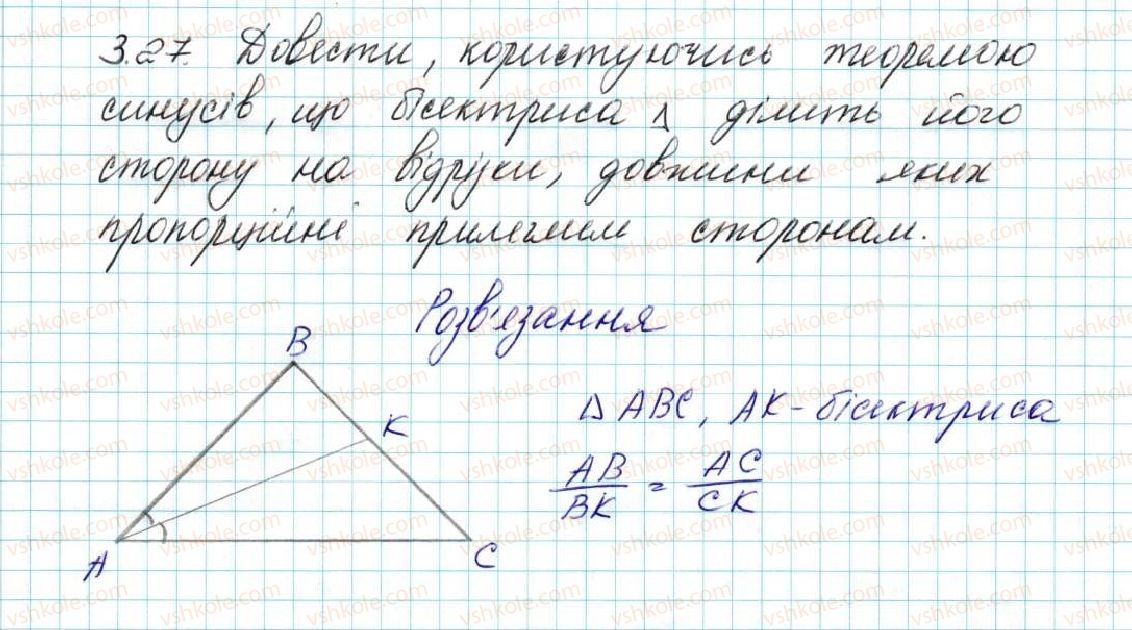 3.27. Довести, користуючись теоремою
синусів, що бісектриса Δ ділить його
сторону на відрізки, довжини яких
пропорційні прилеглим сторонам.
Розв'язання
B
K
A
C
Δ ABC, AK - бісектриса
AB/BK = AC/CK
vshkole.com